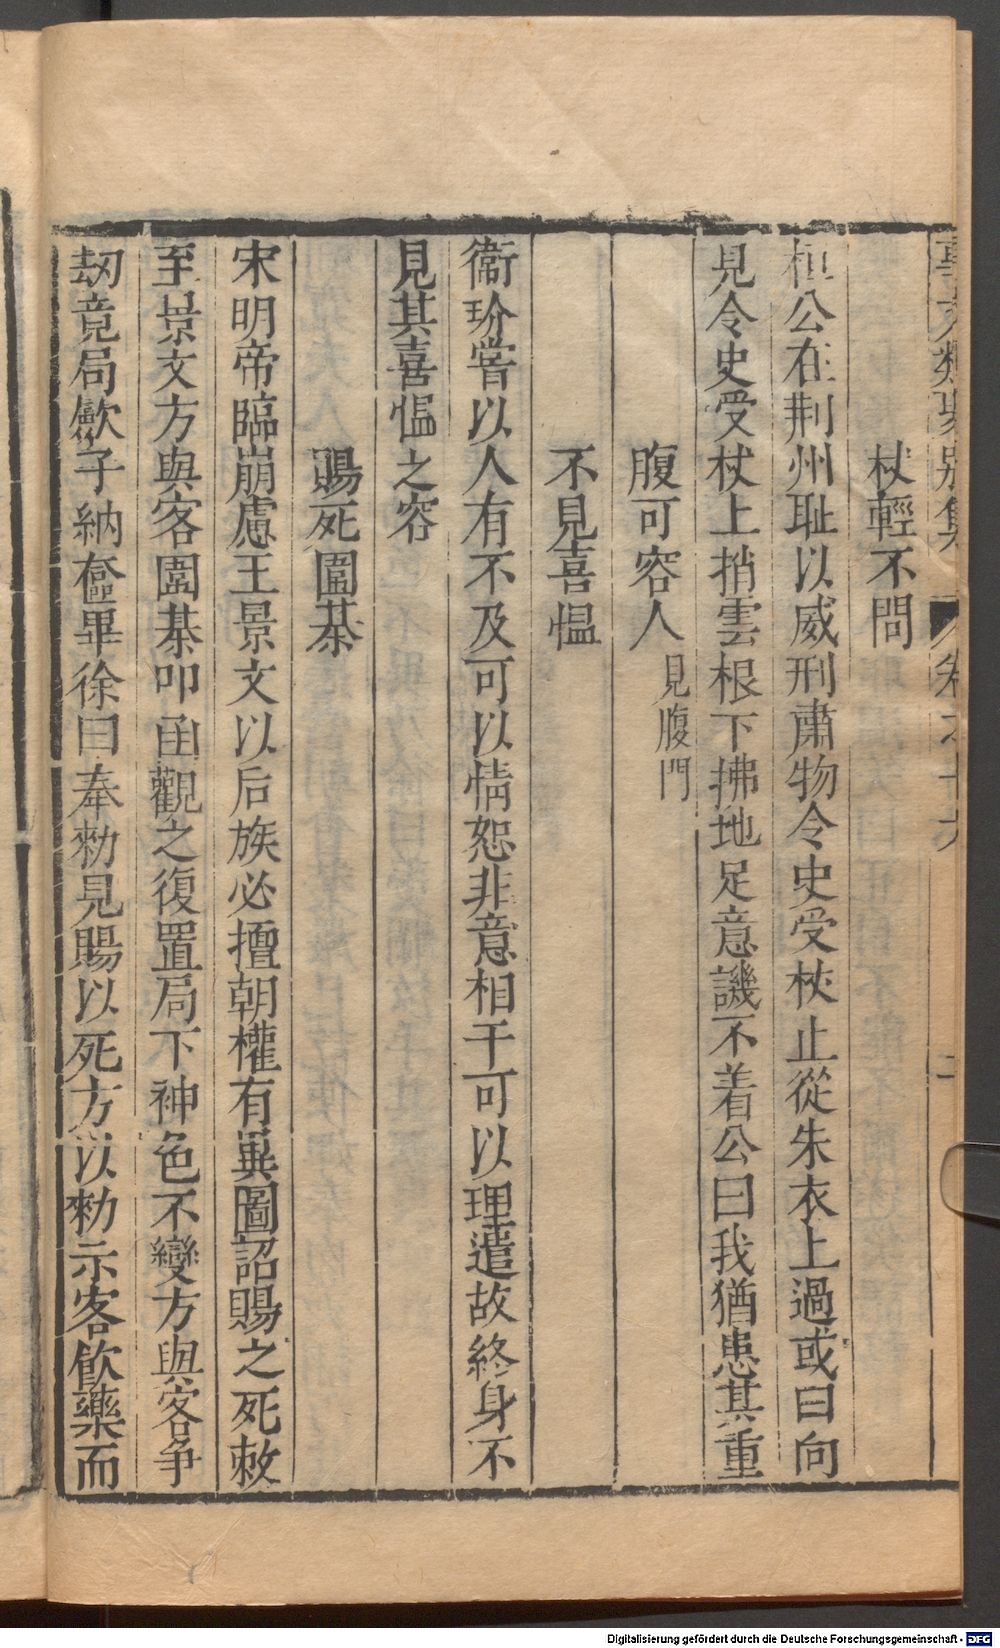 事文類聚別集 卷之十六 二
杖輕不問
桓公在荆州耻以威刑肅物令史受杖止從朱衣上過或曰向
見令史受杖上捎雲根下拂地足意譏不着公曰我猶患其重
腹可容人 見腹門
不見喜愠
衞玠嘗以人有不及可以情恕非意相干可以理遣故終身不
見其喜愠之容
賜死圍棊
宋明帝臨崩慮王景文以后族必擅朝權有異圖詔賜之死敕
至景文方與客圍棊叩函觀之復置局下神色不變方與客争
刼竟局歛子納奩畢徐曰奉勑見賜以死方以勑示客飲藥而
Digitalisierung gefördert durch die Deutsche Forschungsgemeinschaft - DFG